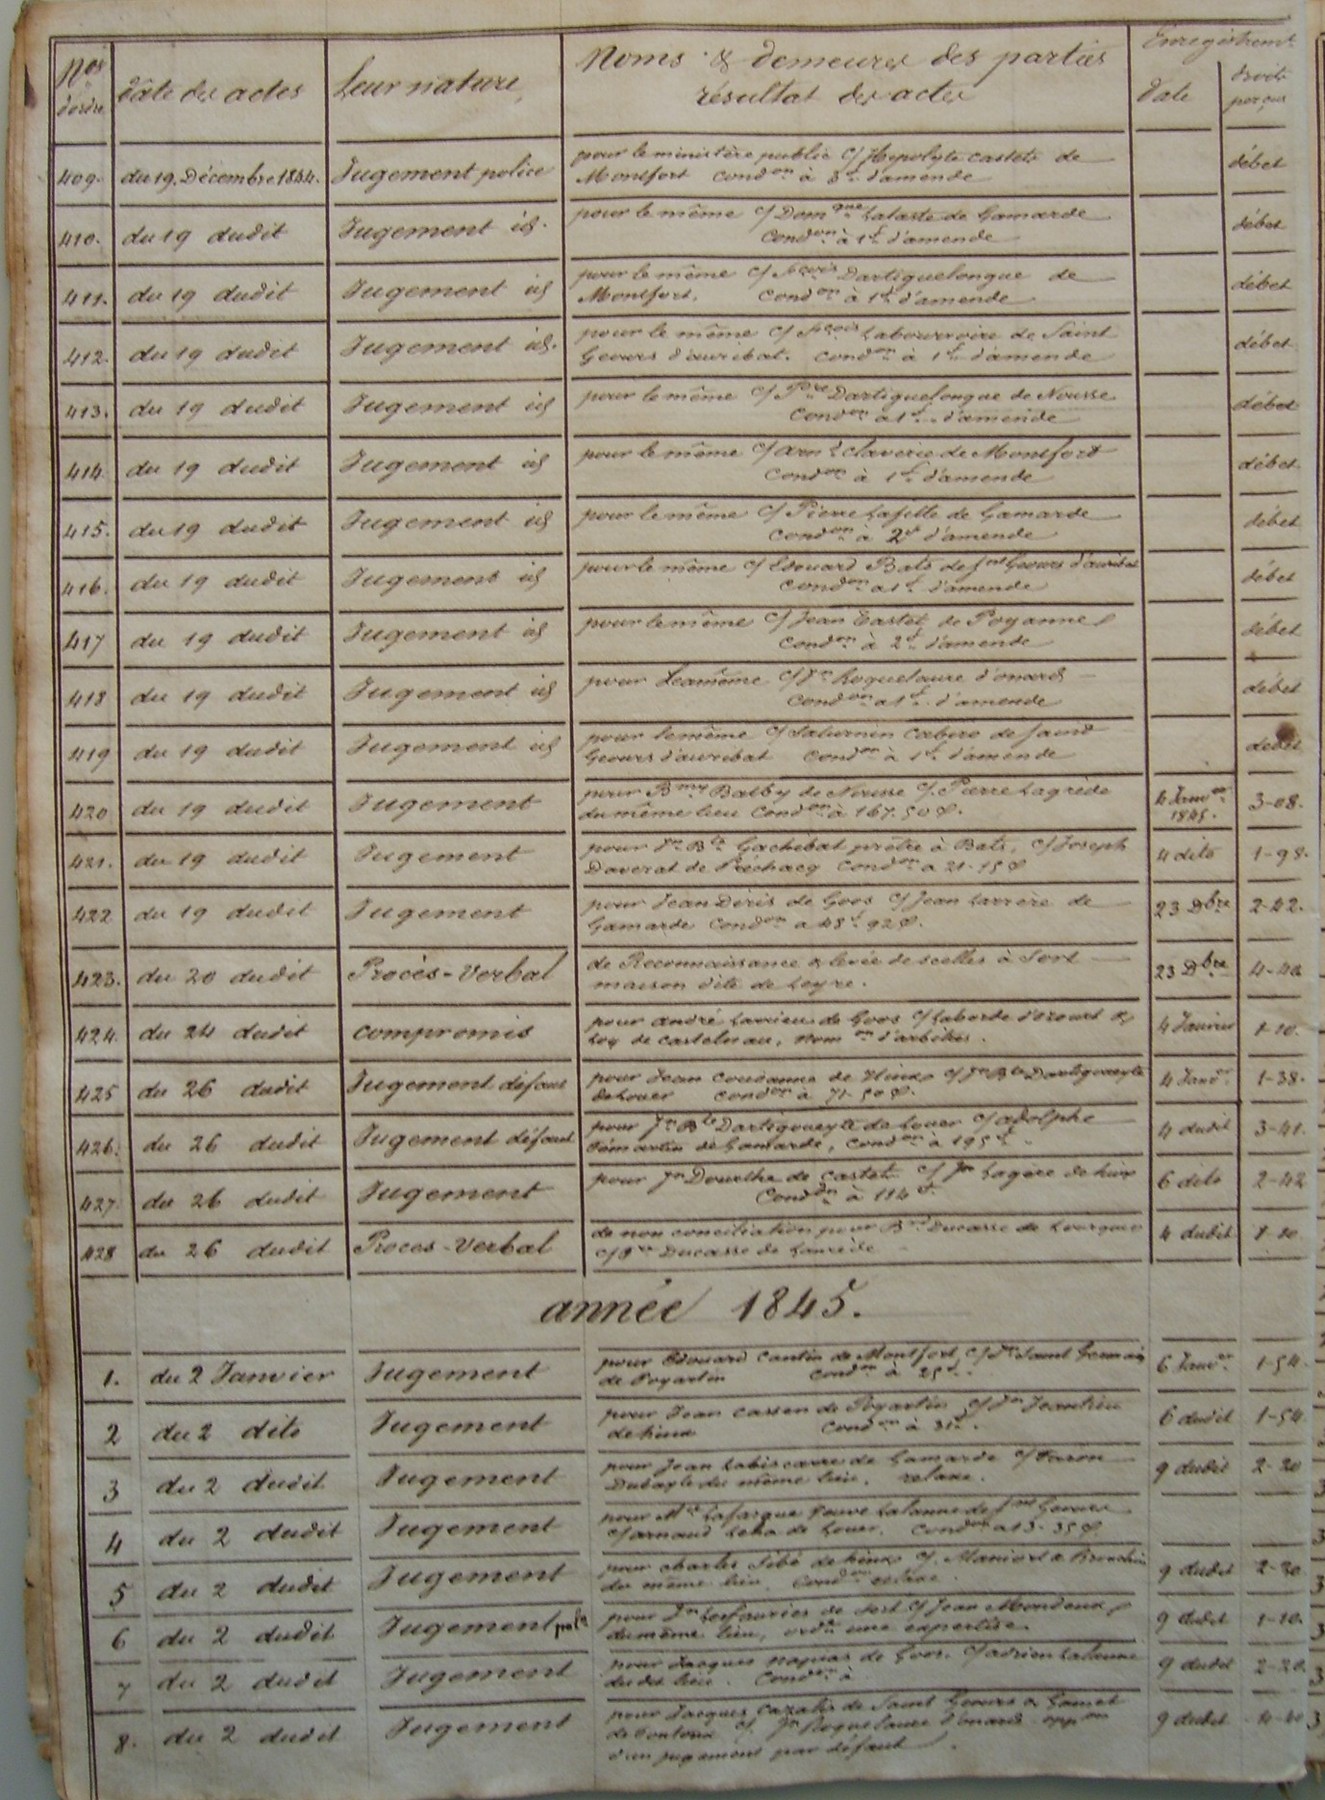 Nos d'ordre | Date des actes | Leur nature | Noms & demeures des parties résultat des actes | Enregistremt. Date | droits perçus
409. | du 19. Décembre 1844. | Jugement police | pour le ministère public C/ Hypolyte Castets de
Montfort Condon à 3f d'amende | débet
410. | du 19 dudit | Jugement id. | pour le même C/ Domque Lataste de Gamarde
Condon à 1f d'amende | débet
411. | du 19 dudit | Jugement id | pour le même C/ Fçois Dartiguelongue de
Montfort. Condon à 1f d'amende | débet
412. | du 19 dudit | Jugement id. | pour le même C/ Fçois Labourroire de Saint
Geours d'auribat. Condon à 1f d'amende | débet
413. | du 19 dudit | Jugement id | pour le même C/ Pre Dartiguelongue de Nousse
Condon à 1f d'amende | débet
414. | du 19 dudit | Jugement id | pour le même C/ arnd Claverie de Montfort
Condon à 1f d'amende | débet.
415. | du 19 dudit | Jugement id | pour le même C/ Pierre Lafitte de Gamarde
Condon à 2f d'amende | débet
416. | du 19 dudit | Jugement id | pour le même C/ Edouard Bats de Snt Geours d'auribat
Condon à 1f d'amende | débet
417 | du 19 dudit | Jugement id | pour le même C/ Jean Tastet de Poyanne
Condon à 2f d'amende | débet
418 | du 19 dudit | Jugement id | pour le même C/ Jn Roquelaure d'onard
Condon à 1f d'amende | débet
419 | du 19 dudit | Jugement id | pour le même C/ Saturnin Cabiro de Saint
Geours d'auribat Condon à 1f d'amende | débet
420 | du 19 dudit | Jugement | pour Bmy Balby de Nousse C/ Pierre Lagrède
du même lieu Condon à 167.50 c. | 4 Janver 1845. | 3-08.
421. | du 19 dudit | Jugement | pour Jn Bte Gachibat prêtre à Bats, C/ Joseph
Daverat de Préchacq Condon à 21-15 c | 4 dito | 1-98.
422 | du 19 dudit | Jugement | pour Jean Diris de Goos C/ Jean Larrère de
Gamarde Condon à 48f 92 c. | 23 Dbre | 2-42.
423. | du 20 dudit | Procès-Verbal | de Reconnaissance & levée de scellés à Sort
maison dite de Leyre. | 23 Dbre | 4-40
424. | du 24 dudit | compromis | pour andré Larrieu de Goos C/ Laborde d'ozourt &
Loq de Castelnau, nomon d'arbitres. | 4 Janvier | 1-10.
425 | du 26 dudit | Jugement défaut | pour Jean Coudanne de Hinx C/ Jn Bte Dartigoueyte
de Louer Condon à 71-50 c. | 4 Janer | 1-38.
426. | du 26 dudit | Jugement défaut | pour Jn Bte Dartigoueyte de Louer C/ adolphe
Démartin de Gamarde, Condon à 195f. | 4 dudit | 3-41.
427. | du 26 dudit | Jugement | pour Jn Dourthe de Castets C/ Jn Lagère de hinx
Condon à 114f. | 6 dito | 2-42
428 | du 26 dudit | Proces-Verbal | de non conciliation pour Ducasse de Lourquen
C/ Ducasse de Laurède | 4 dudit | 1-10
année 1845.
1. | du 2 Janvier | Jugement | pour Edouard Cantin de Montfort, C/ Saint Germain
de Poyartin Condon à 25f. | 6 Janer | 1-54.
2 | du 2 dito | Jugement | pour Jean Cassen de Poyartin C/ Jn
de hinx Condon à 31f. | 6 dudit | 1-54
3 | du 2 dudit | Jugement | pour Jean Labiscarre de Gamarde C/
Dubayle du même lieu. relaxe. | 9 dudit | 2-20
4 | du 2 dudit | Jugement | pour Lafargue Veuve Lalanne de Snt Geours
C/ arnaud de Louer. Condon à 13-35 c.
5 | du 2 dudit | Jugement | pour charles de hinx C/
du même lieu. relaxe. | 9 dudit | 2-20
6 | du 2 dudit | Jugement | pour Jn Lesfauries de Sort C/ Jean Mondeux
du même lieu, ordne une expertise | 9 dudit | 1-10.
7 | du 2 dudit | Jugement | pour Jacques de Goos. C/ adrien Lalanne
dudit lieu. Condon à | 9 dudit | 2-20.
8. | du 2 dudit | Jugement | pour Jacques Cazalis de Saint Geours & Gamet
de Pontonx C/ Jn Roquelaure d'onard - oppon
d'un jugement par défaut. | 9 dudit | 4-40